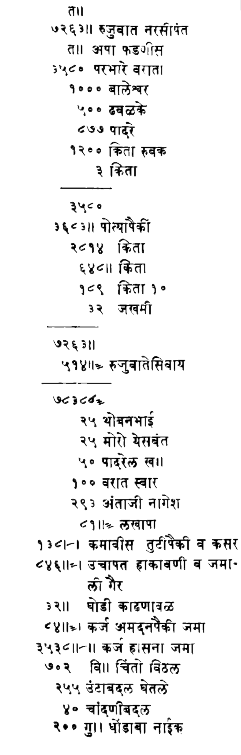 त॥
७२६३॥ रुजुबात नरसीपंत
त॥ अपा फडणीस
३५८० परभारे वराता
१००० बालेश्वर
५०० ढवळके
८७७ पादरे
१२०० किता रुबक
३ किता
३५८०
३६८३॥ पोत्यापैकीं
२८१४ किता
६४८॥ किता
१८९ किता १०
३२ जखमी
७२६३॥
५१४॥= रुजुबातेसिवाय
२५ थोबनभाई
२५ मोरो येसबंत
५० पादरेल ख॥
१०० वरात स्वार
२९३ अंताजी नागेश
८१॥= लखापा
१३८।-। कमावीस तुटीपैकी व कसर
८४६॥=। उचापत हाकाबणी व जमा-
ली गैर
३२॥ घोडी काढणावळ
८४॥=। कर्ज अमदनपैकी जमा
३५३८॥-॥ कर्ज हासना जमा
७०२ वि॥ चिंतो विठल
२५५ उंटाबदल घेतले
४० चांदणीबदल
२०० गु॥ धोंडाबा नाईक